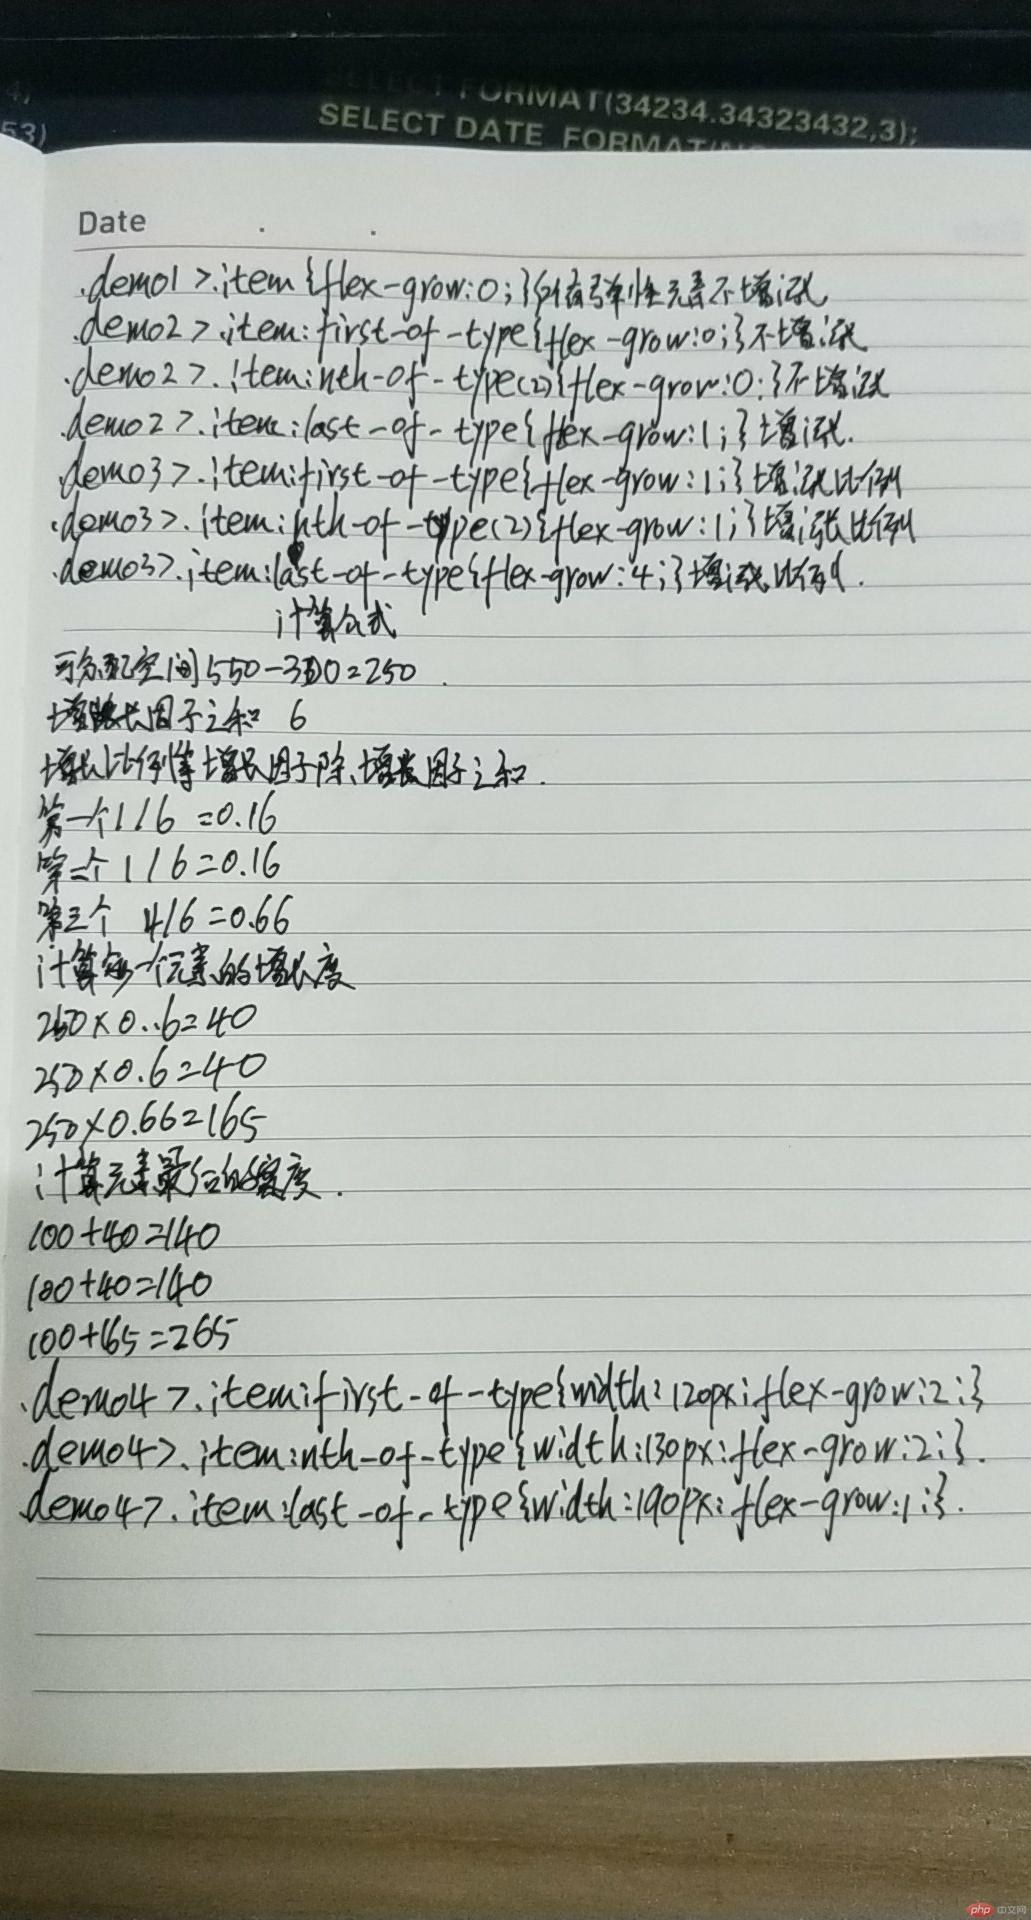 SELECT FORMAT(34234.34323432,3);
53)
SELECT DATE_FORMAT(
Date
.demo1>.item{flex-grow:0;}所有弹性元素不增涨
.demo2>.item:first-of-type{flex-grow:0;}不增涨
.demo2>.item:nth-of-type(2){flex-grow:0;}不增涨
.demo2>.item:last-of-type{flex-grow:1;}增涨.
.demo3>.item:first-of-type{flex-grow:1;}增涨比例
.demo3>.item:nth-of-type(2){flex-grow:1;}增涨比例
.demo3>.item:last-of-type{flex-grow:4;}增涨比例.
计算公式
可分配空间550-300=250.
增长因子之和 6
增长比例等增长因子除增长因子之和.
第一个1/6=0.16
第二个1/6=0.16
第三个 4/6=0.66
计算每一个元素的增长度
250×0..6=40
250×0.6=40
250×0.66=165
计算元素最后的宽度.
100+40=140
100+40=140
100+165=265
.demo4>.item:first-of-type{width:120px;flex-grow:2;}
.demo4>.item:nth-of-type{width:130px;flex-grow:2;}.
.demo4>.item:last-of-type{width:190px;flex-grow:1;}.
php 中文网